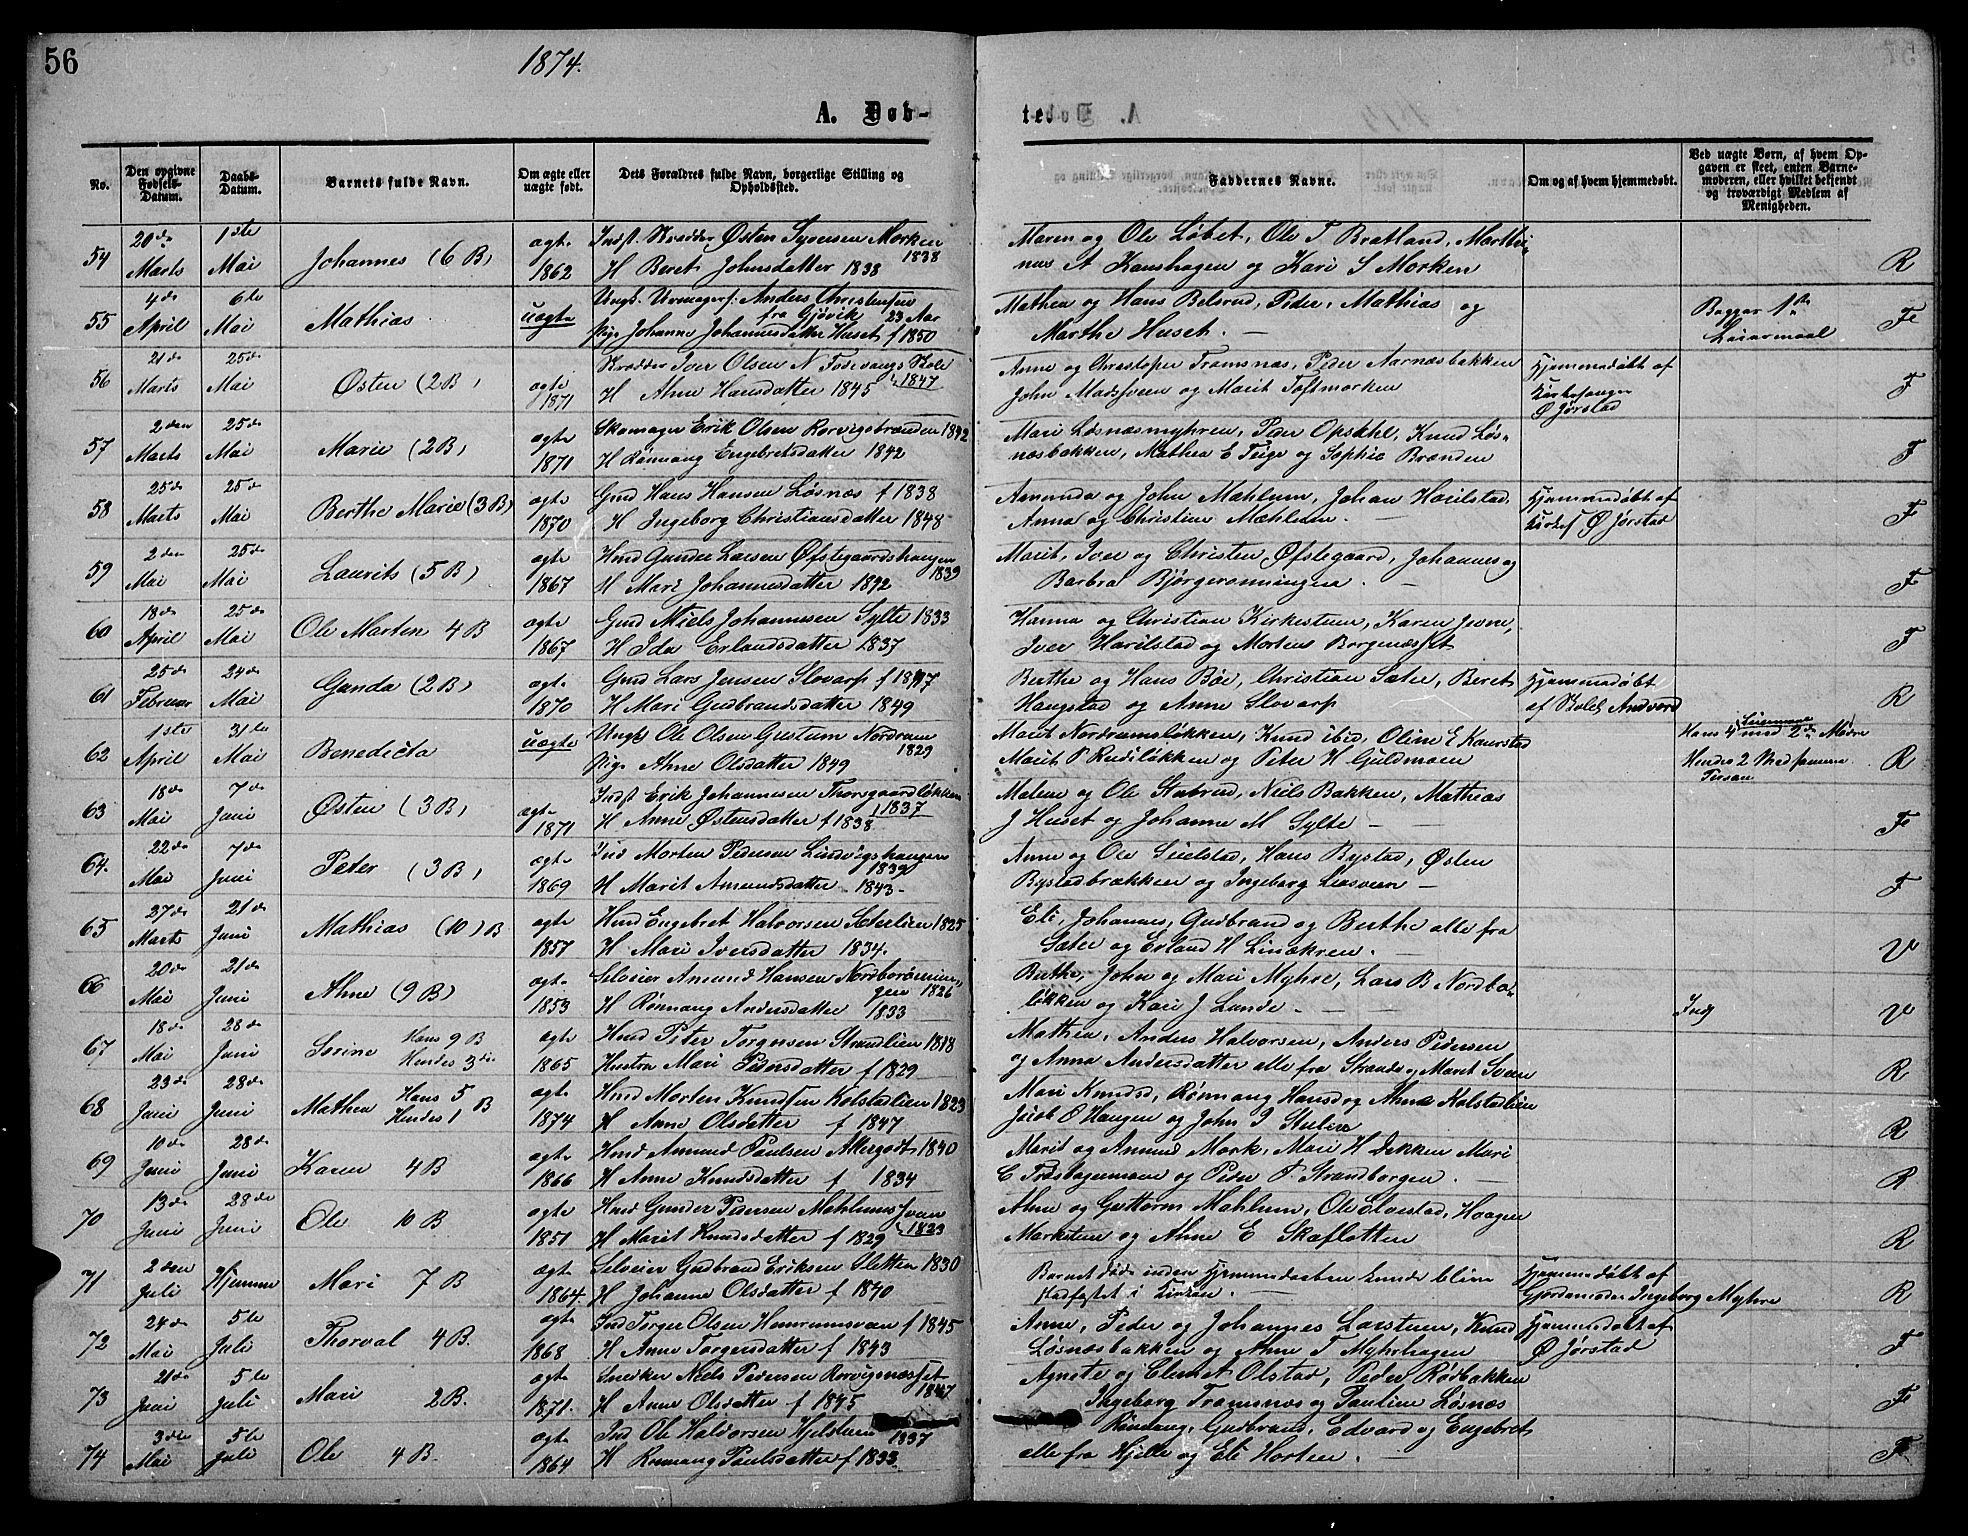 56
1874.
A. Døb-
te.
No.
Den opgivne Fødsels-Datum.
Daabs-Datum.
Barnets fulde Navn.
Om ægte eller uægte født.
Dets Forældres fulde Navn, borgerlige Stilling og Opholdssted.
Faddernes Navne.
Om og af hvem hjemmedøbt.
Ved uægte Børn, af hvem Opgaven er skeet, enten Barnemoderen, eller hvilket bekjendt og troværdigt Medlem af Menigheden.
54 20de Marts 1ste Mai Johannes (6 B) ægte 1862 Indst. Skrædder Østen Syversen Morken 1838
H Beret Johnsdatter 1838
Maren og Ole Løbet, Ole T Bratland, Marthi-
nus A Kanshagen og Kari S Morken R
55 4de April 6te Mai Mathias uægte Ungk. Urmagers. Anders Christensen fra Gjøvik 23 Aar
Pige Johanne Johannesdatter Huset f 1850
Mathea og Hans Belsrud, Peder, Mathias og
Marthe Huset. — Begges 1ste Leiermaal F
56 21de Marts 25de Mai Østen (2 B) ægte 1871 Skrædder Iver Olsen N Fodevangs Skole 1847
H Ahne Hansdatter 1845
Anne og Christopher Tromsnæs, Peder Aarnæsbakken
John Madssveen og Marit Toftmorken
Hjemmedøbt af Kirkesanger Ø Jørstad F
57 2den Marts 25de Mai Marie (2 B) ægte 1871 Skomager Erik Olsen Rorvigsbrænden 1842
H Rønnaug Engebretsdatter 1842
Mari Løsnæsmyhren, Peder Opsahl, Knud Løs-
næsbakken, Mathea E Teige og Sophie Brænden F
58 25de Marts 25de Mai Berthe Marie (3 B) ægte 1870 Gmd Hans Hansen Løsnæs f 1838
H Ingeborg Christiansdatter 1848
Amunda og John Mæhlum, Johan Harilstad,
Anna og Christian Mæhlum. —
Hjemmedøbt af Kirkes Ø Jørstad F
59 2den Mai 25de Mai Laurits (5 B) ægte 1867 Hmd Gunder Larsen Øfstegaardshaugen 1839
H Mari Johannesdatter 1842
Marit, Iver og Christen Øfstegaard, Johannes og
Barbra Bjørgeronningen. — F
60 18de April 25de Mai Ole Marten 4 B ægte 1867 Gmd Niels Johannesen Sylte 1833
H Ida Erlandsdatter 1837
Hanna og Christian Kirkestuen, Karen Jevne,
Iver Harilstad og Morten Borgenæsset F
61 25de Februar 24de Mai Gunda (2 B) ægte 1870 Gmd Lars Jensen Slovarp f 1847
H Mari Gudbrandsdatter 1849
Berthe og Hans Bøe, Christian Sæter, Beret
Haugstad og Anne Slovarp
Hjemmedøbt af Skolel Andvord R
62 1ste April 31te Mai Benedicta uægte Ungk Ole Olsen Gustum Nordrum 1829
Pige Ahne Olsdatter 1849
Marit Nordrumsløkken, Knud ibid, Oline E Kaurstad
Marit P Rudiløkken og Peter H Guldmoen
Hans 4 Leiermaal med 2de Mødre
Hendes 2 Med samme Person R
63 18de Mai 7de Juni Østen (3 B) ægte 1871 Indst Erik Johannesen Thorsgaardsløkken 1837
H Anne Østensdatter f 1838
Malene og Ole Stubrud, Niels Bakken, Mathias
J Huset og Johanne M Sylte — F
64. 22de Mai 7de Juni Peter (3 B) ægte 1869 Ind Morten Pedersen Lindvigshaugen 1839
H Marit Amundsdatter 1843
Anne og Ole Sielstad, Hans Bystad, Østen
Bystadbrækken og Ingeborg Liesveen — F
65 27de Marts 21de Juni Mathias (10) B ægte 1857 Hmd Engebret Halvorsen Sæterlien 1825
H Mari Iversdatter 1834.
Eli, Johannes, Gudbrand og Berthe alle fra
Sæter og Erland H Linækren. — V
66 20de Mai 21de Juni Ahne (9 B) ægte 1853 Selveier Amund Hansen Nordborønnin-
gen 1826
H Rønnaug Andersdatter 1833
Berthe, John og Mari Myhre, Lars B Nordbø-
løkken og Kari J Lunde. — Indg V
67 18de Mai 28de Juni Sorine Hans 9 B Hendes 3de ægte 1865 Hmd Peter Torgersen Strandlien 1818
Hustru Mari Pedersdatter f 1829
Mathea, Anders Halvorsen, Anders Pedersen
og Anna Andersdatter alle fra Strande og Maret Sveen R
68 23de Juni 28de Juni Mathea Hans 5 Hendes 1 B ægte 1874 Hmd Morten Knudsen Kolstadlien 1823
H Anne Olsdatter f 1847
Mari Knudsd, Rønnaug Hansd og Ahne Kolstadlien
Jacob O Haugen og John I Stulien R
69 10de Juni 28de Juni Karen 4 B ægte 1866 Hmd Amund Paulsen Allergodt 1840
H Anne Knudsdatter f 1834
Marit og Amund Mork, Mari H Dækken Mari
E Trøstagermoen og Peder P Strandborgen. — R
70 13de Juni 28de Juni Ole 10 B ægte 1851 Hmd Gunder Pedersen Mæhlumssveen 1823
H Marit Knudsdatter f 1829
Ahne og Guttorm Mahlum, Ole Elvestad, Haagen
Markstuen og Ahne E Skaflotten R
71 2den Juli Hjemme Mari 7 B ægte 1864. Selveier Gudbrand Eriksen Sletten 1830
H Johanne Olsdatter f 1840
Barnet døde inden Hjemmedaaben kunde blive
stadfæstet i Kirken. —
Hjemmedøbt af Gjordemoder Ingeborg Myhre R
72 24de Mai 5te Juli Thorval 4 B. ægte 1868 Ind Torger Olsen Hemrumsveen f 1845
H Anne Torgersdatter f 1843
Anne, Peder og Johannes Larstuen, Knud
Løsnæsbakken og Ahne T Myhrhagen
Hjemmedøbt af Ø Jørstad F
73 21de Juni 5te Juli Mari 2 B. ægte 1871. Snedker Niels Pedersen Rorvigsnæsset 1847
H Anne Olsdatter f 1845
Agnete og Clemet Olstad, Peder Rødbakken
Ingeborg Tromsnæs og Pauline Løsnæs F
74 3die Mai 5te Juli Ole 4 B. ægte 1864 Ind Ole Haldorsen Hjelstuen 1837
H Rønnaug Paulsdatter f 1833
Rønnaug, Gudbrand, Edvard og Engebret
alle fra Hjelle og Eli Horten. — F